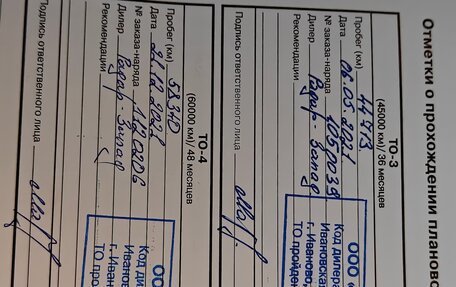 Отметки о прохождении планово
ТО-3
(45000 км)/ 36 месяцев
Пробег (км) 44473
Дата 06.05.2021
№ заказа-наряда 1050039
Дилер Радар-Запад
Рекомендации
ООО «
Код дилера
Ивановская
г. Иваново,
ТО пройден
Подпись ответственного лица
ТО-4
(60000 км)/ 48 месяцев
Пробег (км) 58340
Дата 21.12.2021
№ заказа-наряда
Дилер Радар-Запад
Рекомендации
ОО
Код дил
Иванов
г. Ивано
ТО прой
Подпись ответственного лица